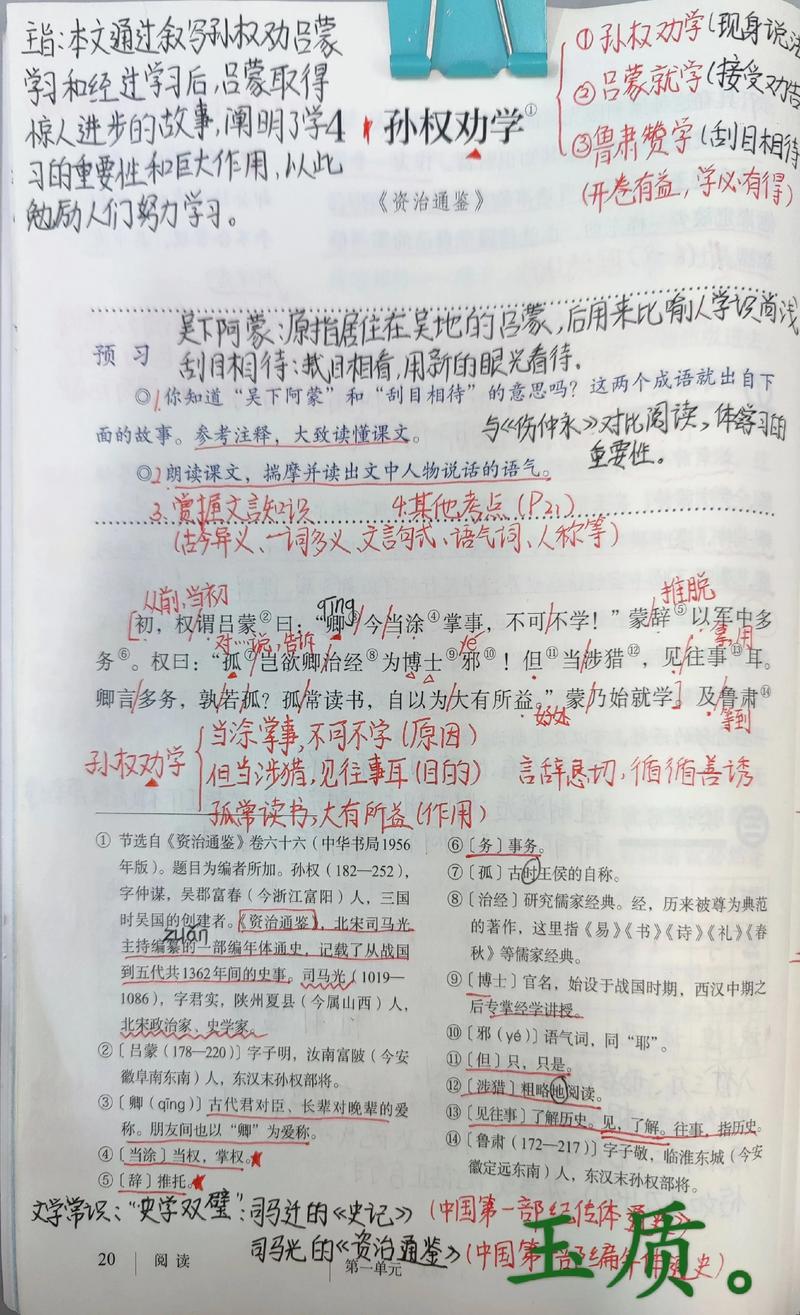 主旨:本文通过叙写孙权劝吕蒙
学习和经过学习后,吕蒙取得
惊人进步的故事,阐明了学
习的重要性和巨大作用,以此
勉励人们努力学习。
4 孙权劝学①
《资治通鉴》
①孙权劝学(现身说法
②吕蒙就学(接受劝告
③鲁肃赞学(刮目相待
(开卷有益,学必有得)
吴下阿蒙:原指居住在吴地的吕蒙,后用来比喻人学识尚浅
预 习
刮目相待:拭目相看,用新的眼光看待。
◎1.你知道“吴下阿蒙”和“刮目相待”的意思吗?这两个成语就出自下
面的故事。参考注释,大致读懂课文。
与《伤仲永》对比阅读,体会学习的
重要性。
◎2.朗读课文,揣摩并读出文中人物说话的语气。
3.掌握文言知识 4.其他考点(P21)
(古今异义、一词多义、文言句式、语气词、人称等)
从前,当初
qīng
推脱
初,权谓吕蒙②曰:“卿③今当涂④掌事,不可不学!”蒙辞⑤以军中多
对…说,告诉
yé
事,用
务⑥。权曰:“孤⑦岂欲卿治经⑧为博士⑨邪⑩!但⑪当涉猎⑫,见往事⑬耳。
卿言多务,孰若孤?孤常读书,自以为大有所益。”蒙乃始就学。及鲁肃⑭
好处
等到
孙权劝学
当涂掌事,不可不学(原因)
但当涉猎,见往事耳(目的)
孤常读书,大有所益(作用)
言辞恳切,循循善诱
① 节选自《资治通鉴》卷六十六(中华书局1956
年版)。题目为编者所加。孙权(182—252),
字仲谋,吴郡富春(今浙江富阳)人,三国
时吴国的创建者。《资治通鉴》,北宋司马光
zuǎn
主持编纂的一部编年体通史,记载了从战国
到五代共1362年间的史事。司马光(1019—
1086),字君实,陕州夏县(今属山西)人,
北宋政治家、史学家。
②〔吕蒙(178—220)〕字子明,汝南富陂(今安
徽阜南东南)人,东汉末孙权部将。
③〔卿(qīng)〕古代君对臣、长辈对晚辈的爱
称。朋友间也以“卿”为爱称。
④〔当涂〕当权,掌权。
⑤〔辞〕推托。
⑥〔务〕事务。
⑦〔孤〕古时王侯的自称。
⑧〔治经〕研究儒家经典。经,历来被尊为典范
的著作,这里指《易》《书》《诗》《礼》《春
秋》等儒家经典。
⑨〔博士〕官名,始设于战国时期,西汉中期之
后专掌经学讲授。
⑩〔邪(yé)〕语气词,同“耶”。
⑪〔但〕只,只是。
⑫〔涉猎〕粗略地阅读。
⑬〔见往事〕了解历史。见,了解。往事,指历史。
⑭〔鲁肃(172—217)〕字子敬,临淮东城(今安
徽定远东南)人,东汉末孙权部将。
文学常识:“史学双璧”:司马迁的《史记》(中国第一部纪传体通史)
司马光的《资治通鉴》(中国第一部编年体通史)
20 阅读
第一单元
玉质。